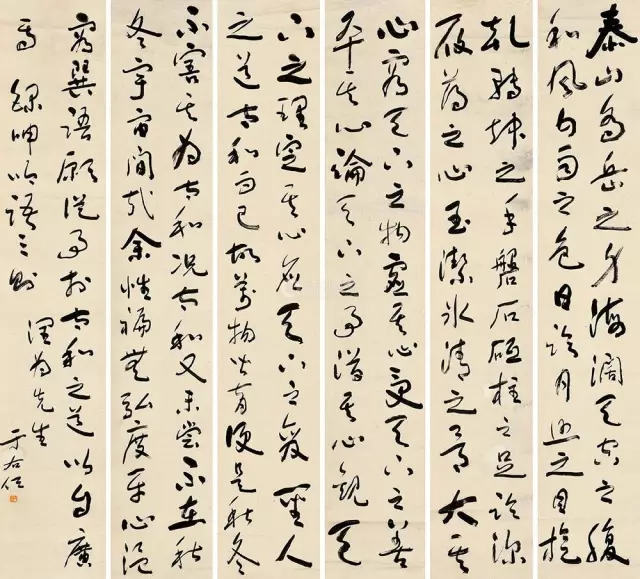 泰山喬岳之身海闊天空之腹
和風甘雨之色日照月臨之目旋
乾轉坤之手磐石砥柱之足臨深
履薄之心玉潔冰清之骨大其
心容天下之物虛其心受天下之善
平其心論天下之事潛其心觀天
下之理定其心應天下之變聖人
之道太和而已故萬物皆育便是秋冬
不害其為太和況太和又未嘗不在秋
冬宇宙間哉余性褊無弘度平心溫
容巽語願從事於太和之道以自廣
焉 錄呻吟語三則
潤為先生
于右任